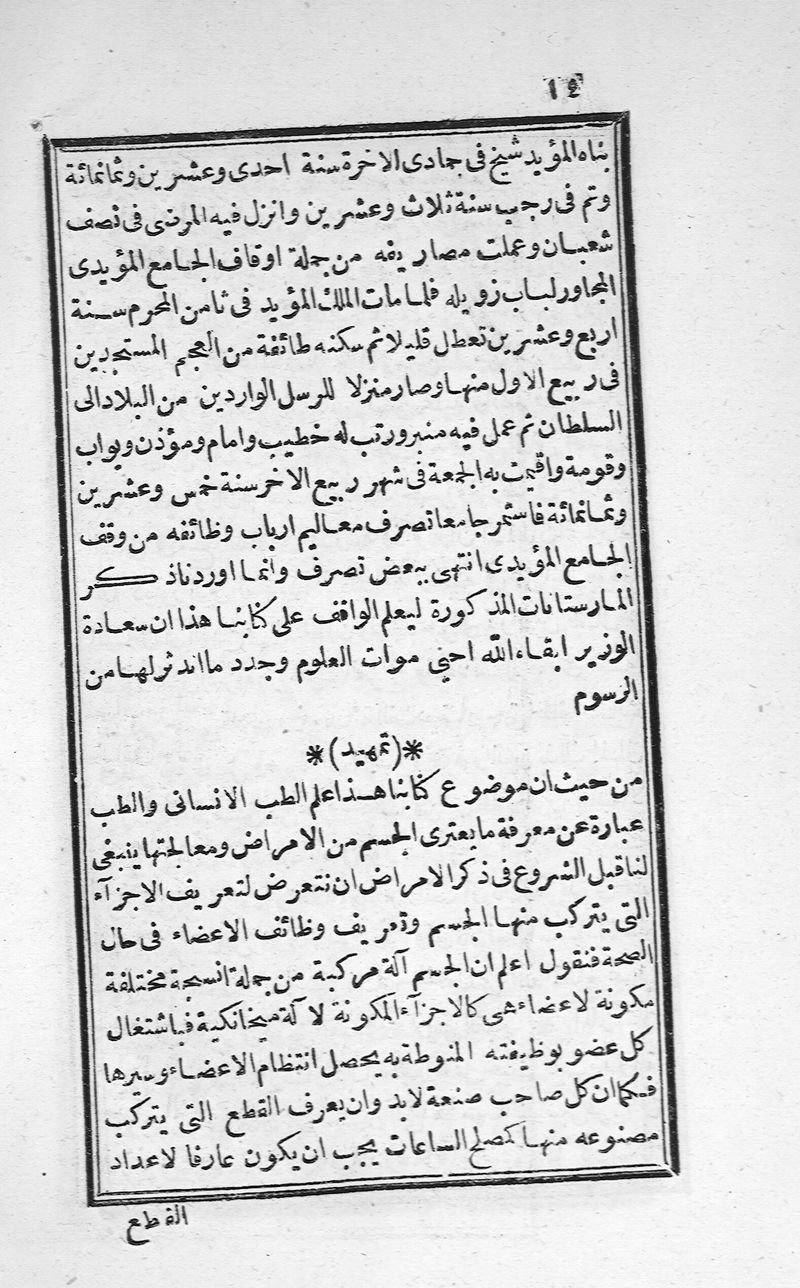 ١٢
بناه المؤيد شيخ فى جمادى الاخرة سنة احدى وعشرين وثمانمائة
وتم فى رجب سنة ثلاث وعشرين وانزل فيه المرضى فى نصف
شعبان وعملت مصاريفه من جملة اوقاف الجامع المؤيدى
المجاور لباب زويله فلما مات الملك المؤيد فى ثامن المحرم سنة
اربع وعشرين تعطل قليلا ثم سكنه طائفة من العجم المستجدين
فى ربيع الاول منها وصار منزلا للرسل الواردين من البلاد الى
السلطان ثم عمل فيه منبر ورتب له خطيب وامام ومؤذن وبواب
وقومة واقيمت به الجمعة فى شهر ربيع الاخر سنة خمس وعشرين
وثمانمائة فاستمر جامعا تصرف معاليم ارباب وظائفه من وقف
الجامع المؤيدى انتهى ببعض تصرف وانما اوردنا ذكر
المارستانات المذكورة ليعلم الواقف على كتابنا هذا ان سعادة
الوزير ابقاه الله احيى موات العلوم وجدد ما اندثر لها من
الرسوم
*(تمهيد)*
من حيث ان موضوع كتابنا هذا علم الطب الانسانى والطب
عبارة عن معرفة ما يعترى الجسم من الامراض ومعالجتها ينبغى
لنا قبل الشروع فى ذكر الامراض ان نتعرض لتعريف الاجزآء
التى يتركب منها الجسم وتعريف وظائف الاعضاء فى حال
الصحة فنقول اعلم ان الجسم آلة مركبة من جملة انسجة مختلفة
مكونة لاعضاء هى كالاجزآء المكونة لا كة ميخانكية فباشتغال
كل عضو بوظيفته المنوطة به يحصل انتظام الاعضاء وسيرها
فكما ان كل صاحب صنعة لابد وان يعرف القطع التى يتركب
مصنوعه منها كمصلح الساعات يجب ان يكون عارفا لاعداد
القطع